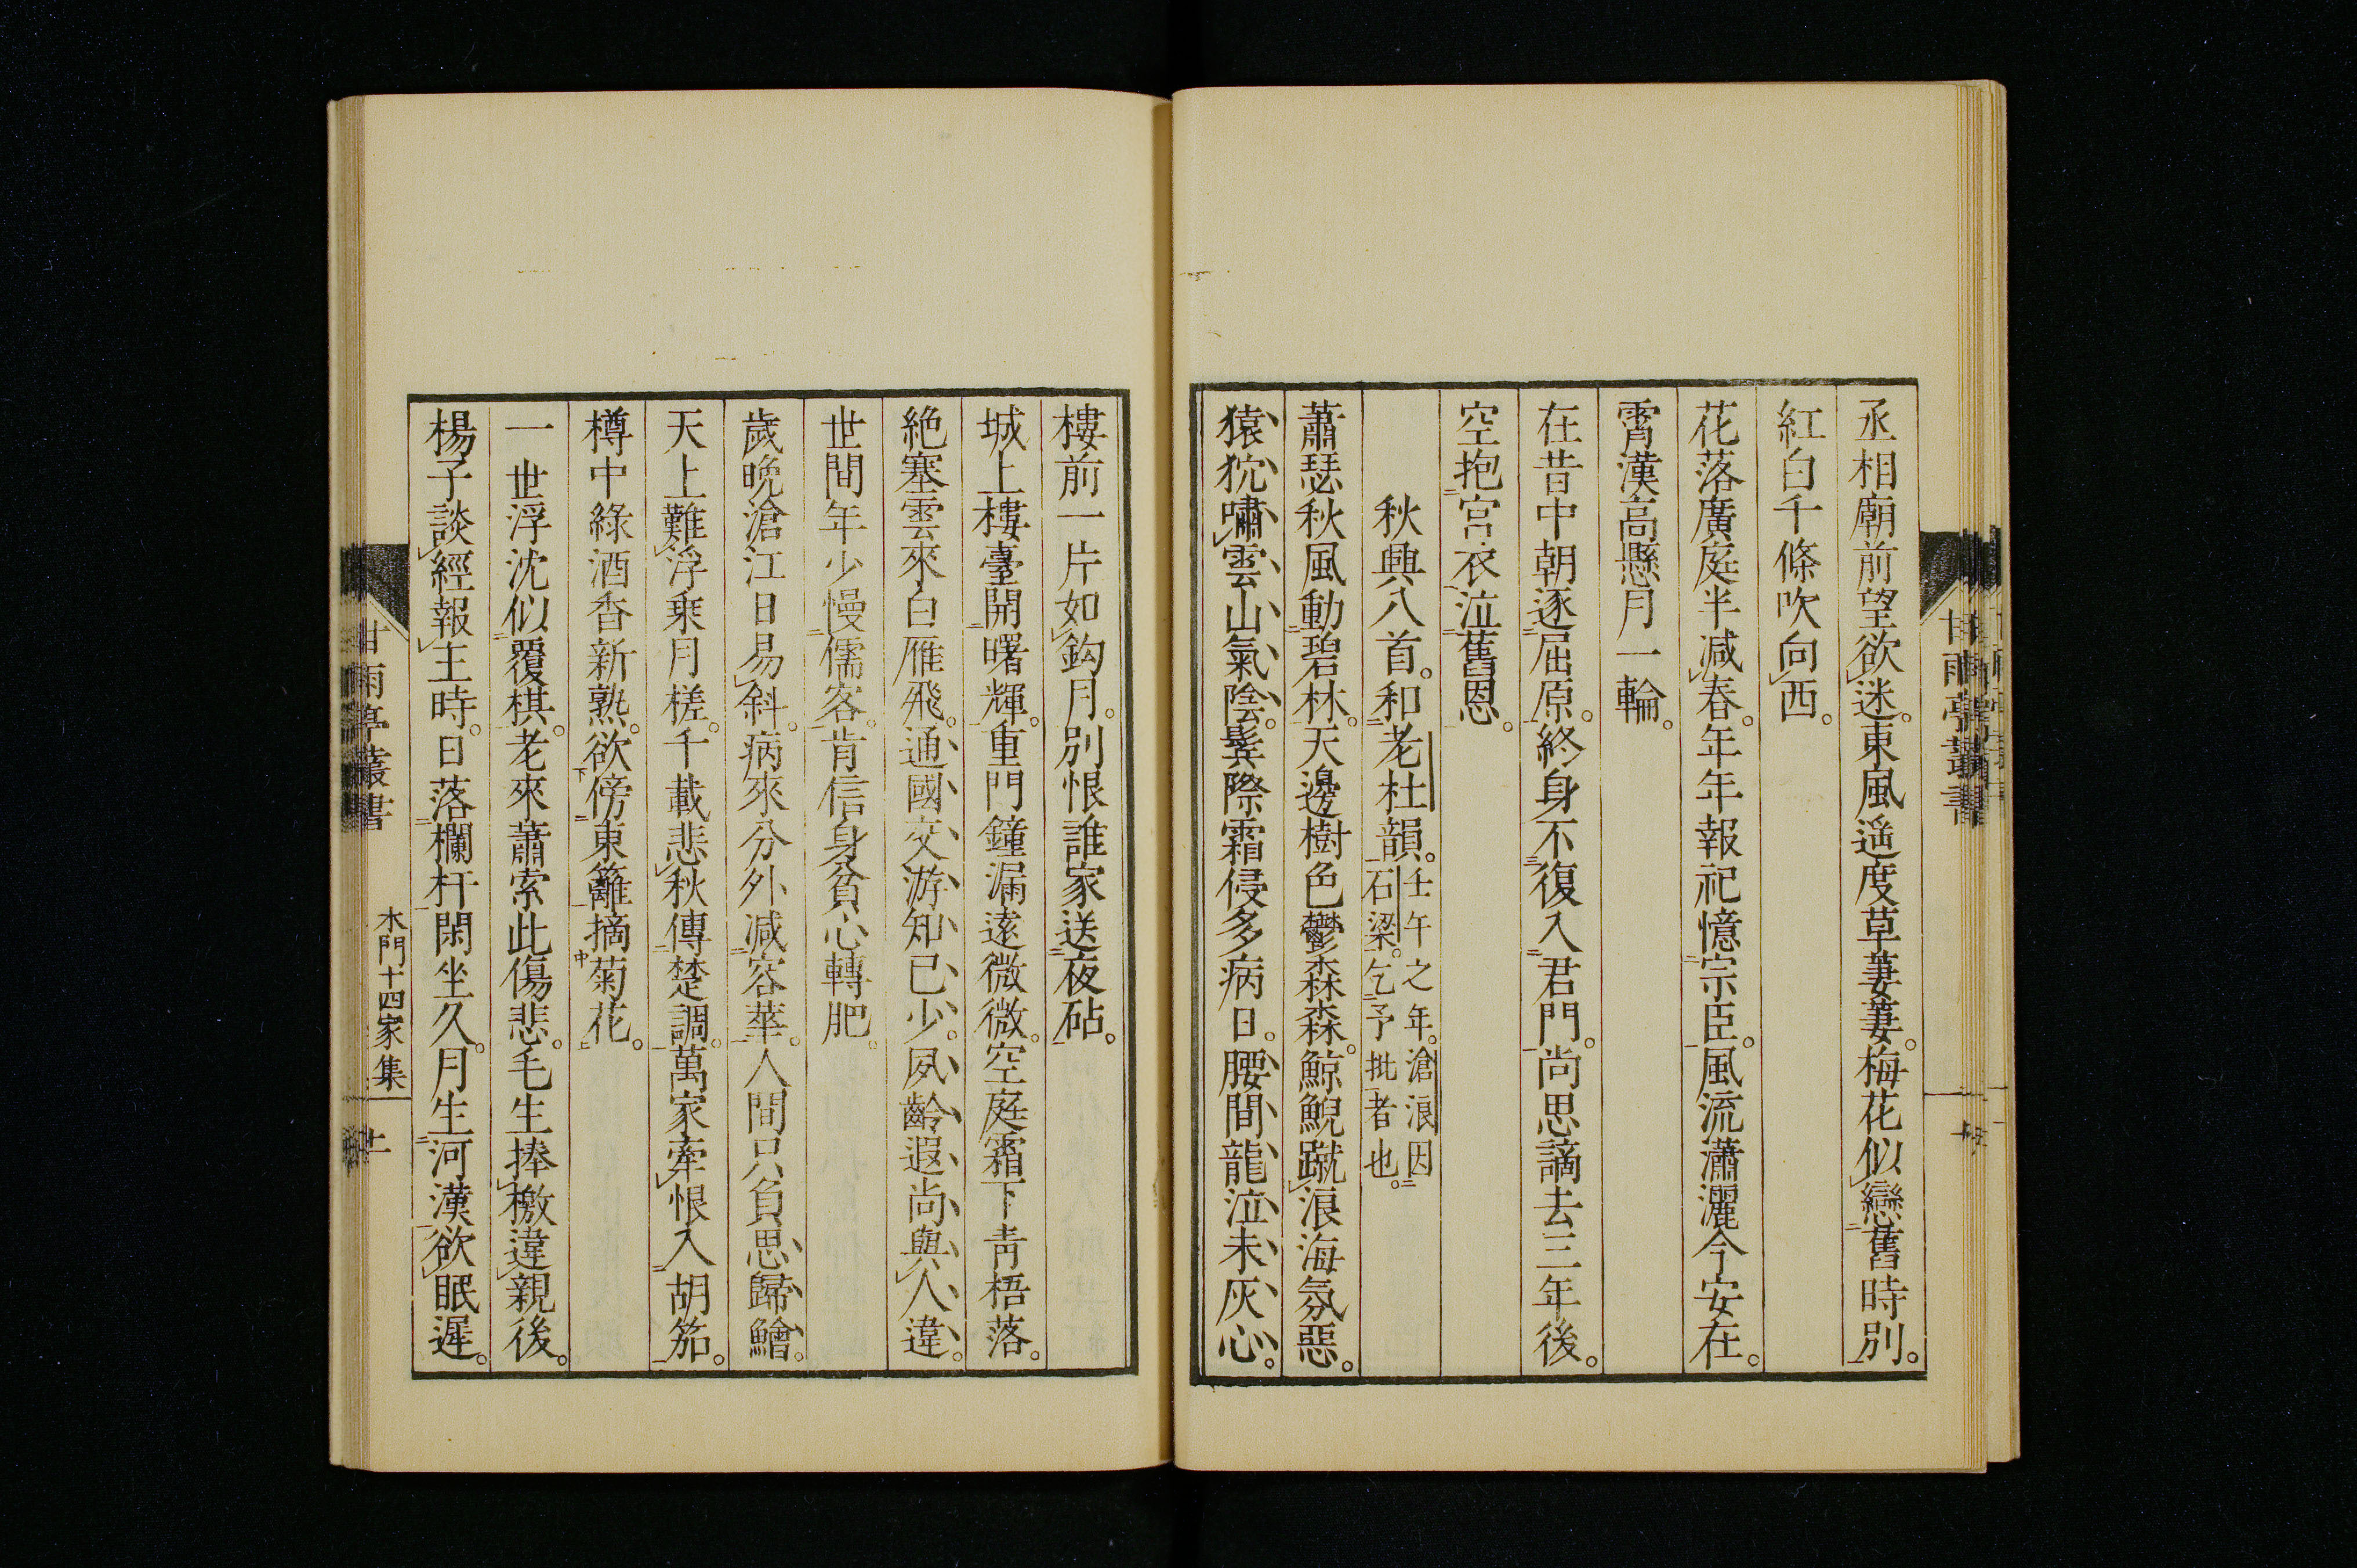 丞相廟前望欲迷。東風遥度草萋萋。梅花似戀舊時別。
紅白千條吹向西。
花落廣庭半減春。年年報祀憶宗臣。風流瀟灑今安在。
霄漢高懸月一輪。
在昔中朝逐屈原。終身不復入君門。尚思謫去三年後。
空抱宮衣泣舊恩。
秋興八首。和老杜韻。壬午之年。滄浪因石梁。乞予批者也。
蕭瑟秋風動碧林。天邊樹色鬱森森。鯨鯢蹴浪海氛惡。
猿狖嘯雲山氣陰。鬓際霜侵多病日。腰間龍泣未灰心。
樓前一片如鈎月。別恨誰家送夜砧。
城上樓臺開曙輝。重門鐘漏遠微微。空庭霜下青梧落。
絶塞雲來白雁飛。通國交游知已少。夙齡遐尚與人違。
世間年少慢儒客。肯信身貧心轉肥。
歲晩滄江日易斜。病來分外減容華。人間只負思歸鱠。
天上難浮乘月槎。千載悲秋傳楚調。萬家牽恨入胡笳。
樽中綠酒香新熟。欲傍東籬摘菊花。
一世浮沈似覆棋。老來蕭索此傷悲。毛生捧檄違親後。
楊子談經報主時。日落欄杆閑坐久。月生河漢欲眠遲。
甘雨亭叢書
木門十四家集